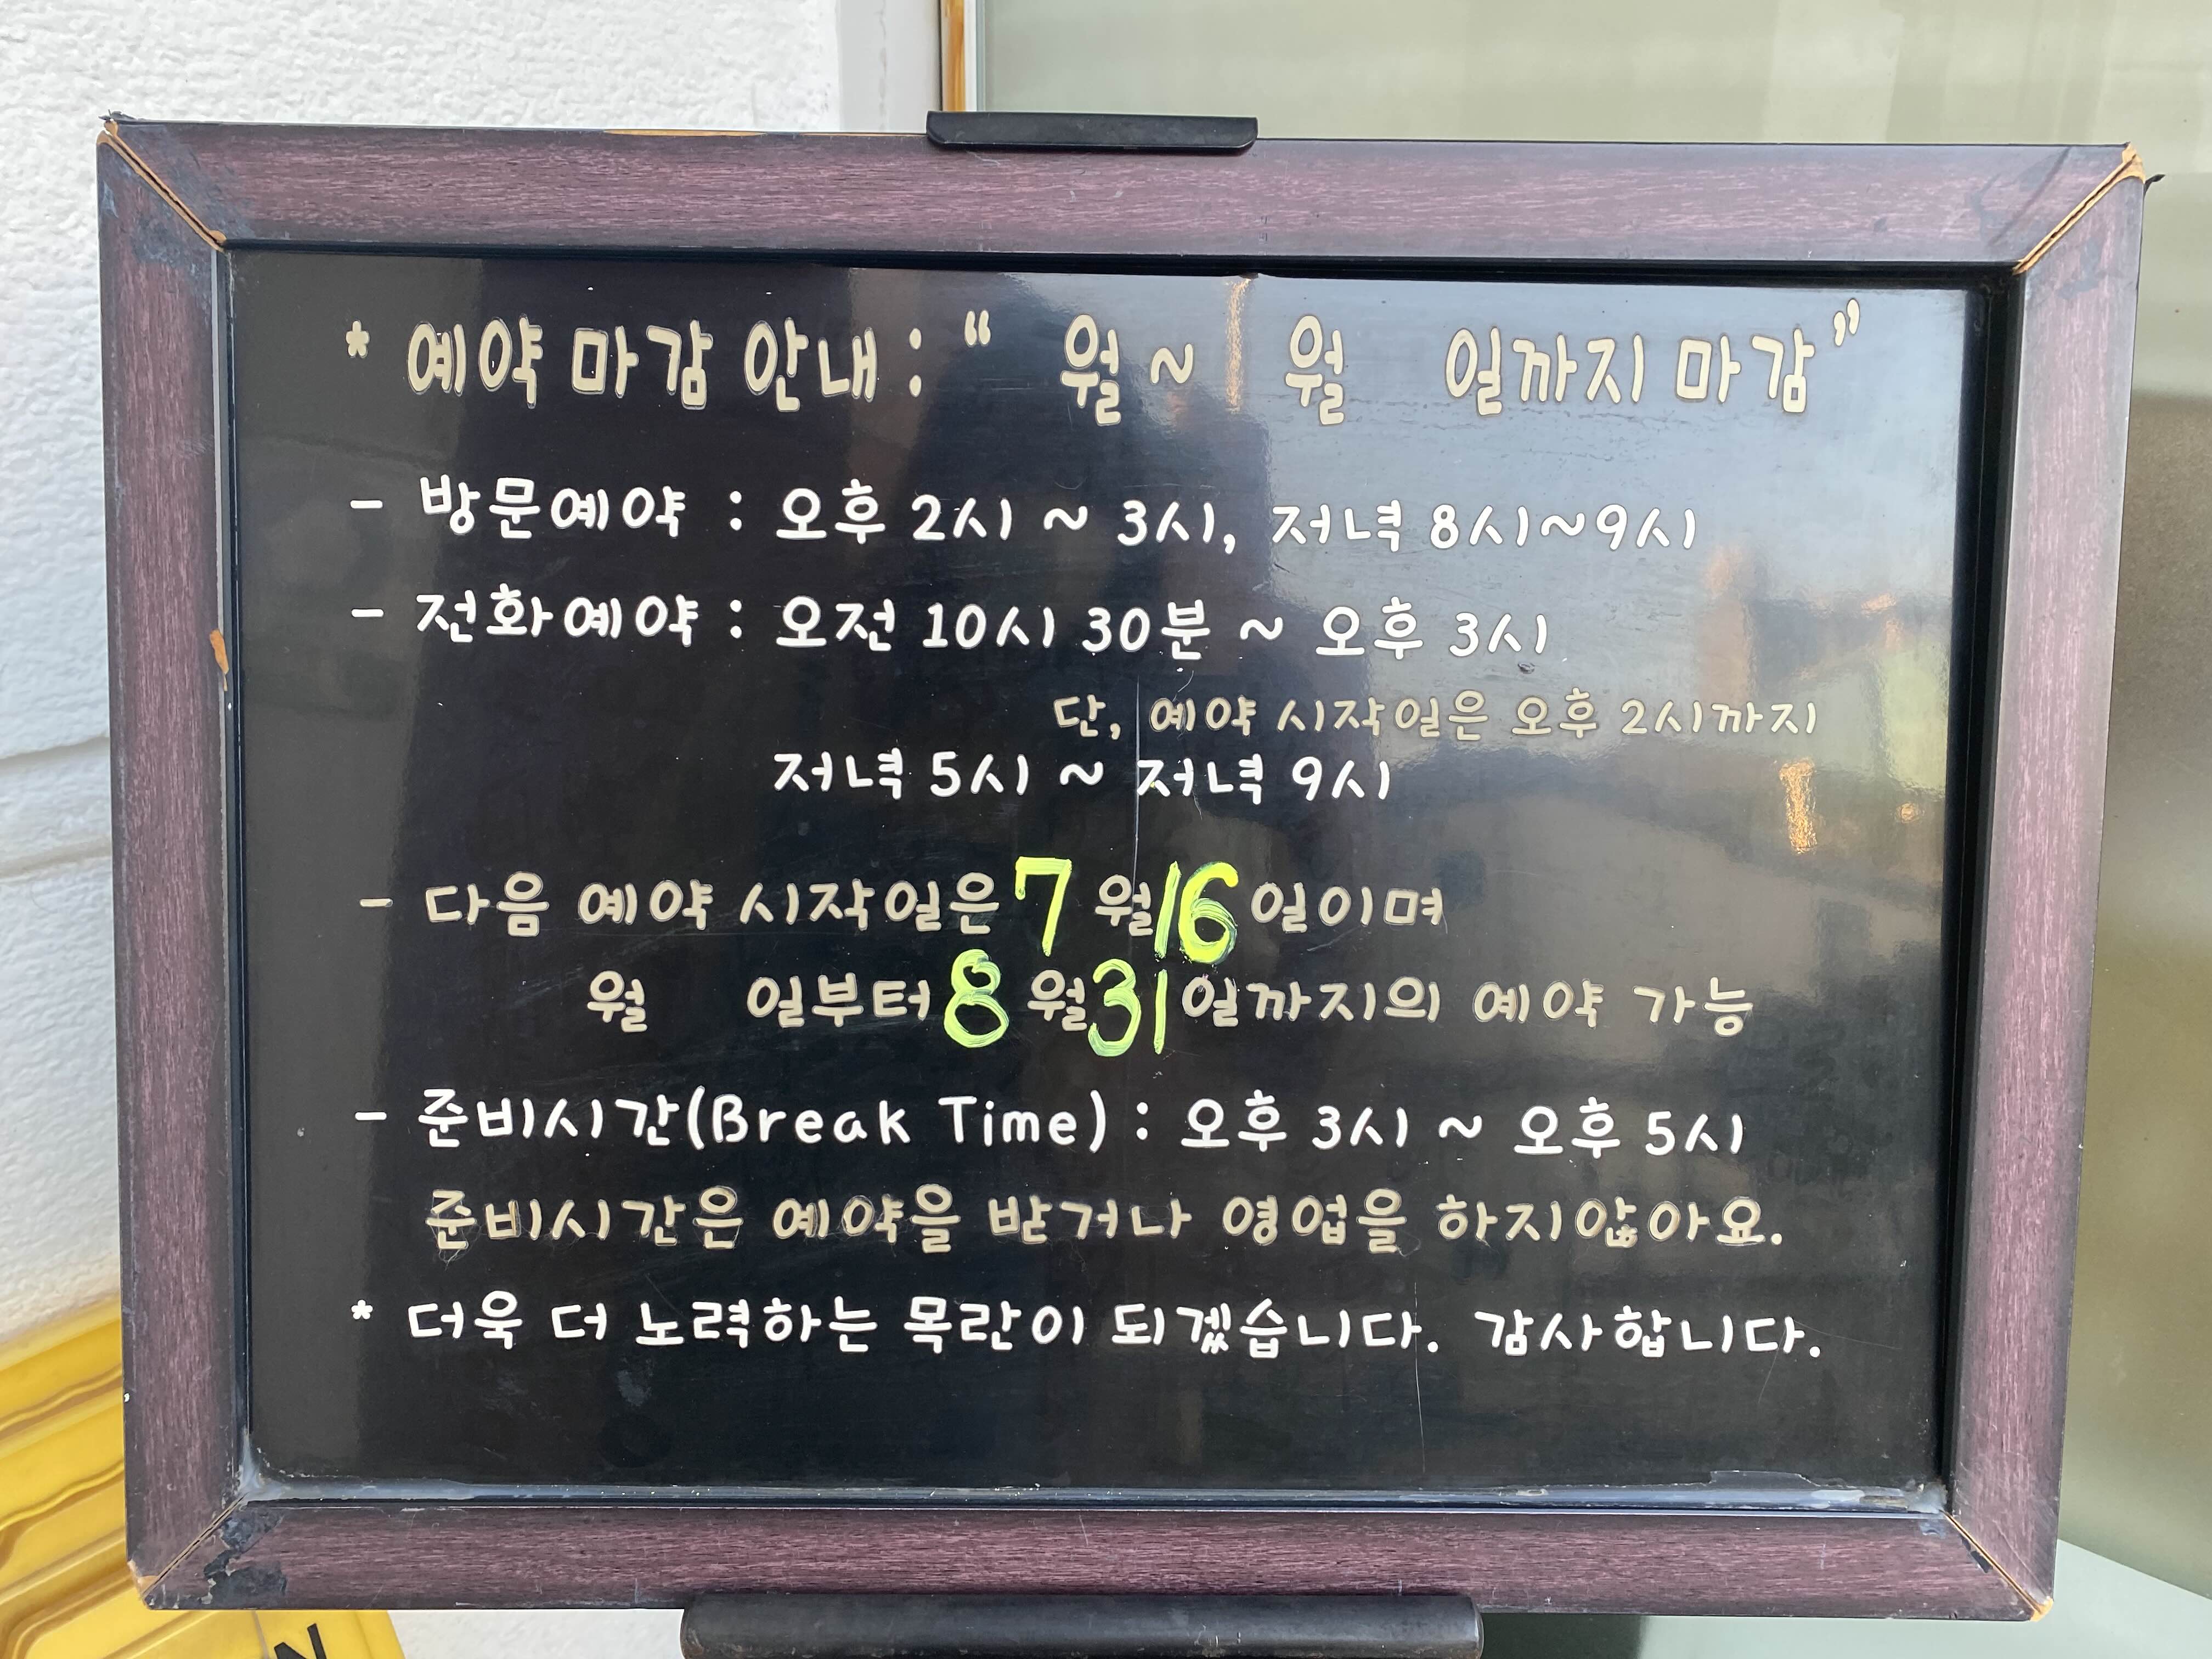 * 예약 마감 안내 : “ 월 ~ 월 일까지 마감”
- 방문예약 : 오후 2시 ~ 3시, 저녁 8시~9시
- 전화예약 : 오전 10시 30분 ~ 오후 3시
단, 예약 시작일은 오후 2시까지
저녁 5시 ~ 저녁 9시
- 다음 예약 시작일은 7 월 16 일이며
월 일부터 8 월 31 일까지의 예약 가능
- 준비시간(Break Time) : 오후 3시 ~ 오후 5시
준비시간은 예약을 받거나 영업을 하지않아요.
* 더욱 더 노력하는 목란이 되겠습니다. 감사합니다.
N